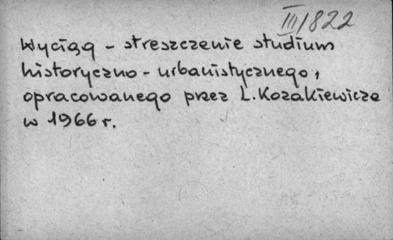 III/822
Wyciąg - streszczenie studium
historyczno - urbanistycznego,
opracowanego przez L. Kozakiewicza
w 1966 r.